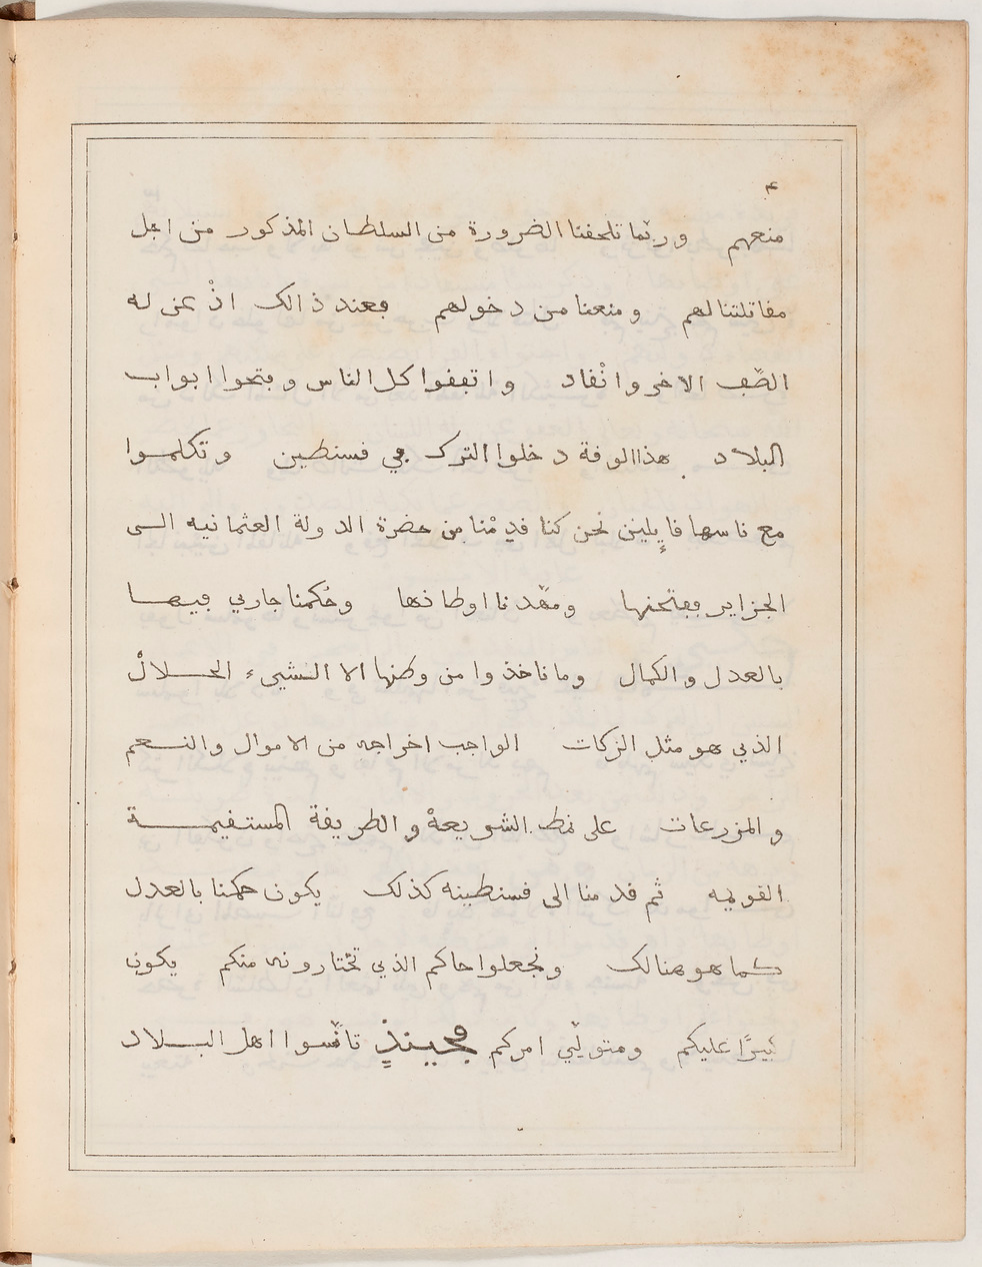 ٤
منعهم وربّما تلحقنا الضرورة من السلطان المذكور من اجل
مقاتلتنا لهم ومنعنا من دخولهم فعند ذالك اذْعن له
الصّف الاخر وانْقاد واتفقوا كل الناس وفتحوا ابواب
البلاد هذا الوقة دخلوا الترك في قسنطين وتكلموا
مع ناسها قايلين نحن كنا قدمْنا من حضرة الدولة العثمانيه الى
الجزاير ففتحنها ومهّدنا اوطانها وحُكمنا جاري فيها
بالعدل والكمال وما ناخذوا من وطنها الا الشيء الحلالْ
الذي هو مثل الزكات الواجب اخراجه من الاموال والنعم
والمزرعات على نمط الشريعهْ والطريقة المستقيمة
القويمه ثم قدمنا الى قسنطينه كذلك يكون حكمنا بالعدل
كما هو هنالك ونجعلوا حاكم الذي تختارونه منكم يكون
عليكم ومتولّي امركم فحينئذٍ اهل البلاد